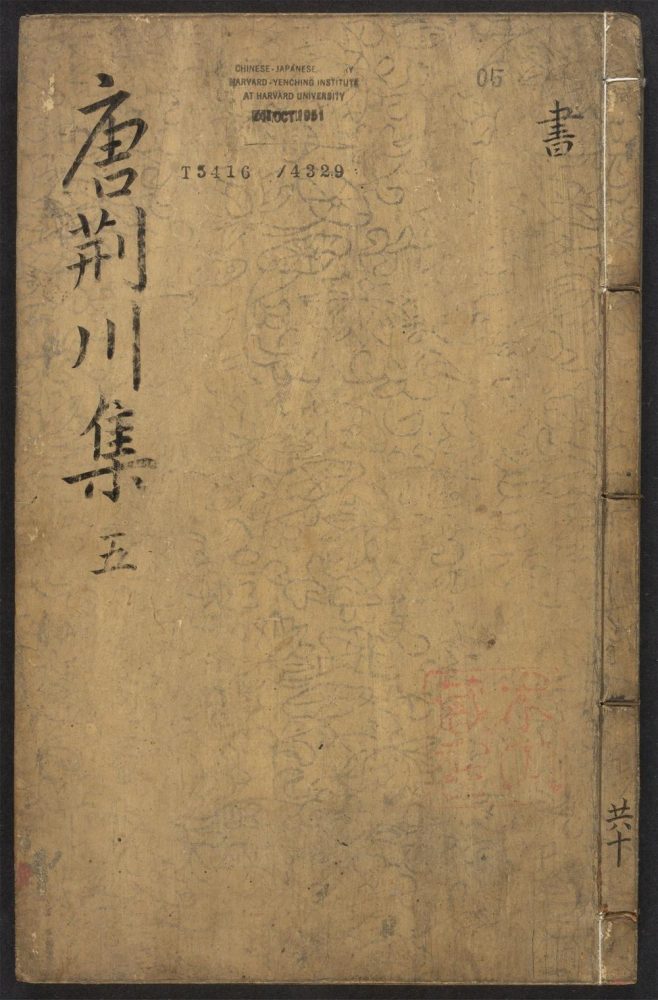 書
共十
CHINESE-JAPANESE
HARVARD-YENCHING INSTITUTE
AT HARVARD UNIVERSITY
OCT 1951
05
T5416 /4329
唐荆川集 五